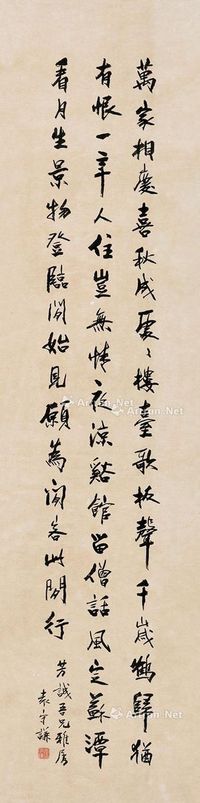 萬家相慶喜秋成處〻樓臺歌板聲千歲鶴歸猶
有恨一年人住豈無情夜涼谿館留僧話風定蘇潭
看月生景物登臨閒始見願為閒客此閒行
芳誠吾兄雅屬
袁守謙
Artron.Net